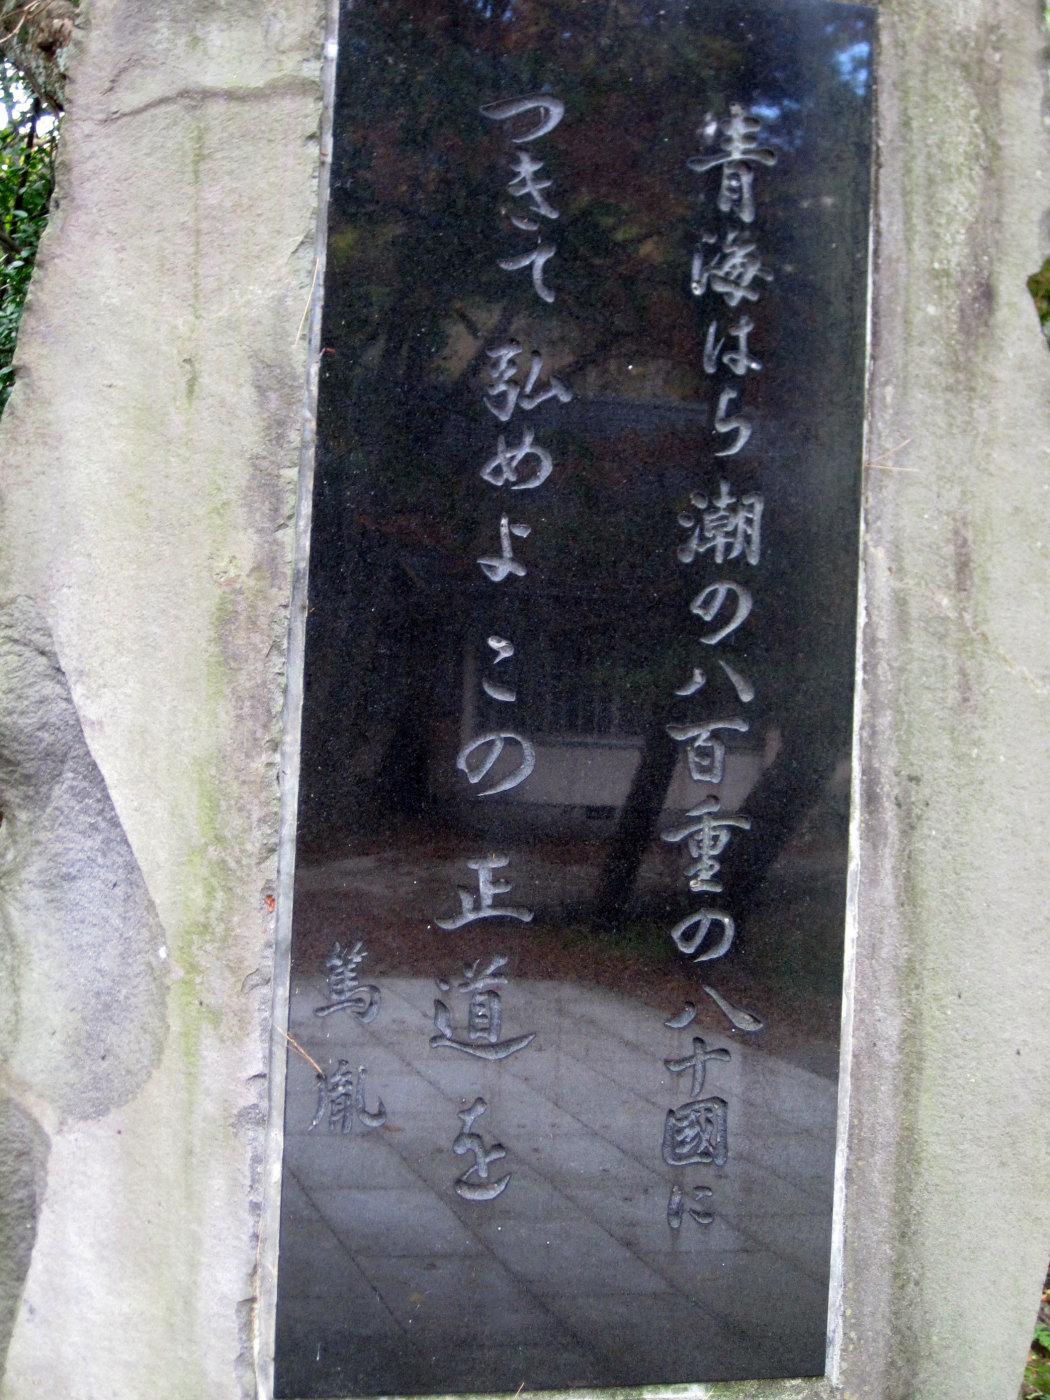 青海はら潮の八百重の八十國に
つきて弘めよこの正道を
篤胤